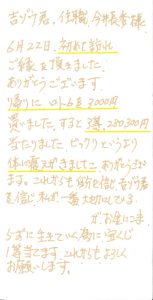 吉ゾウ君、住職 今井長秀様、
6月22日、初めて訪れ
ご縁を頂きました。
ありがとうございます。
帰りに ロトを3000円
買いました。すると 翌、280,300円
当たりました。ビックリというより
体に震えがきました。ありがとうござい
ます。これからも自分を信じ、吉ゾウ君
を信じ、私が一番大切にしている
が、お金に困
らずに生きていく為に宝くじ
1等当てます。これからもよろしく
お願いします。